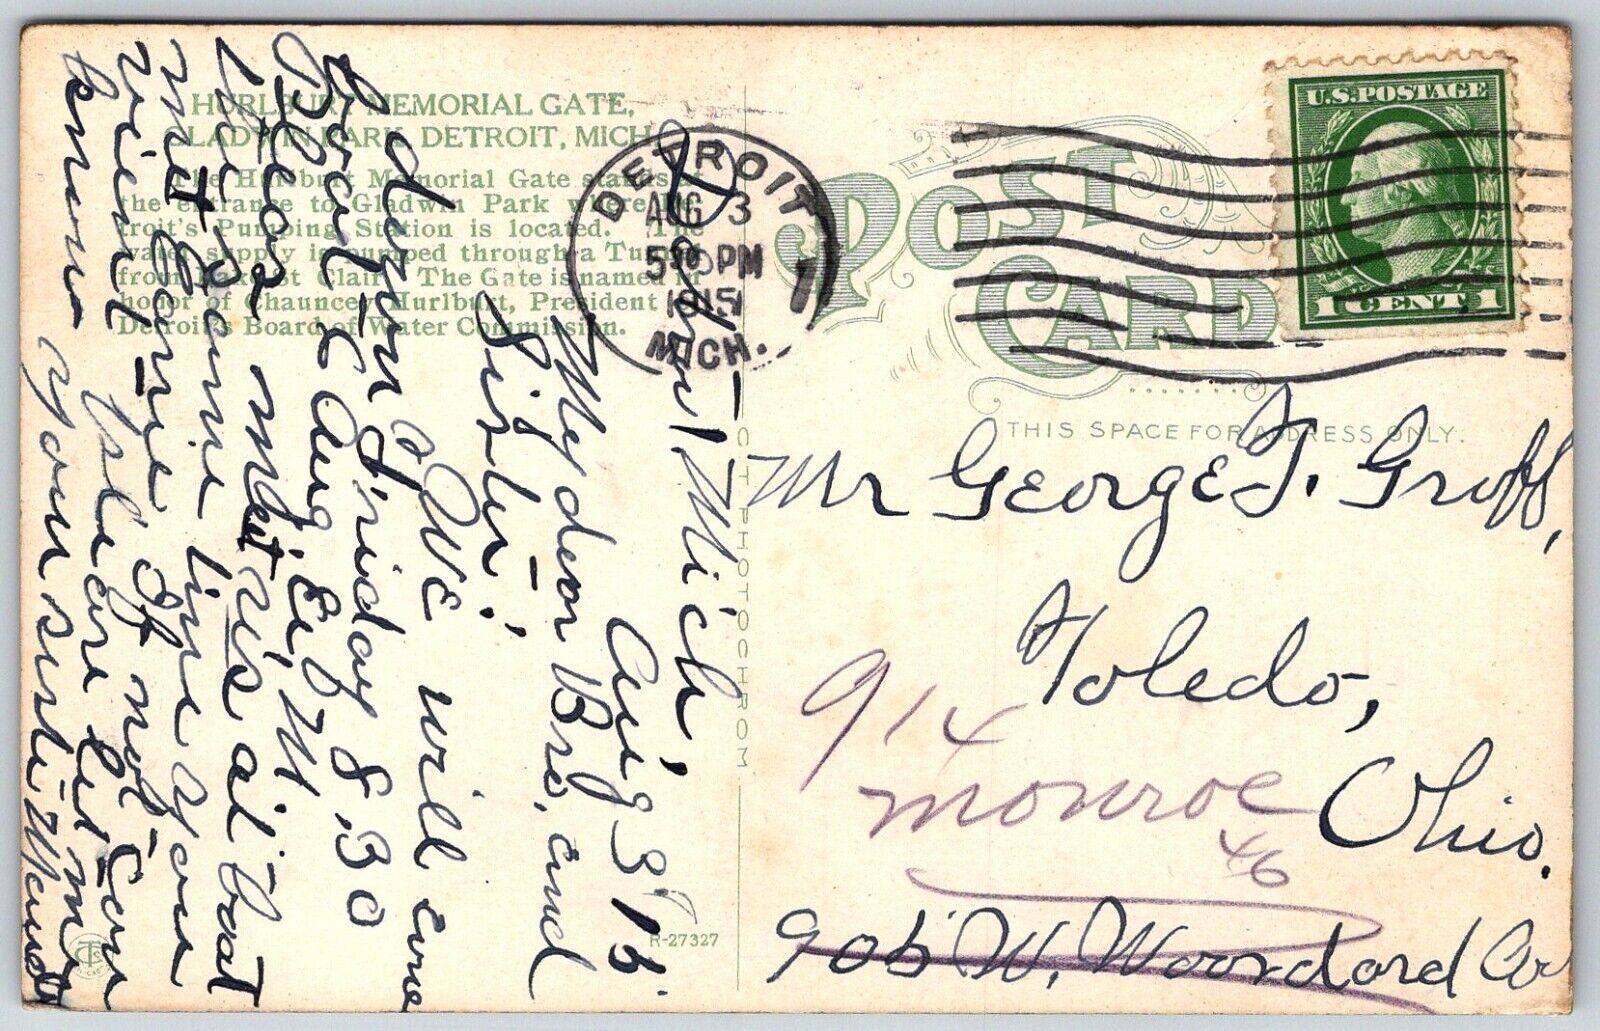 HURLBURT MEMORIAL GATE,
GLADWIN PARK, DETROIT, MICH.
The Hurlburt Memorial Gate stands at
the entrance to Gladwin Park where
troit's Pumping Station is located. The
water supply is pumped through a
from Lake St Clair. The Gate is named in
honor of Chauncey Hurlburt, President
Detroit's Board of Water Commission.
DETROIT
AUG 3
5 PM
1915
MICH.
1
POST
CARD
THIS SPACE FOR ADDRESS ONLY.
U.S. POSTAGE
1 CENT 1
Mich,
Aug 3' 15
My dear Bro, and
Sister;
We will come
Friday 8.30
Aug. 6,
Clear meet us at boat
the same time
and Carrie If not Con
vient please let me
know your sister Maud
C.T. PHOTOCHROM
R-27327
Mr George F. Groff,
Toledo,
Ohio.
914
Monroe
46
905 W. Woodard Av